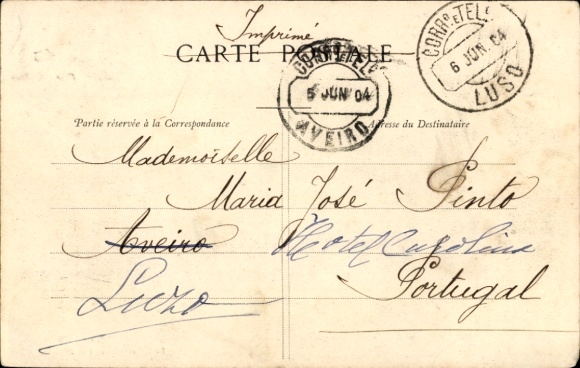 Imprimé
CARTE POSTALE
CORRO. E TELO.
5 JUN 04
AVEIRO
CORRO. E TELO.
6 JUN. 04
LUSO
Partie réservée à la Correspondance
Adresse du Destinataire
Mademoiselle
Maria José Pinto
Aveiro Hotel
Luzo Portugal